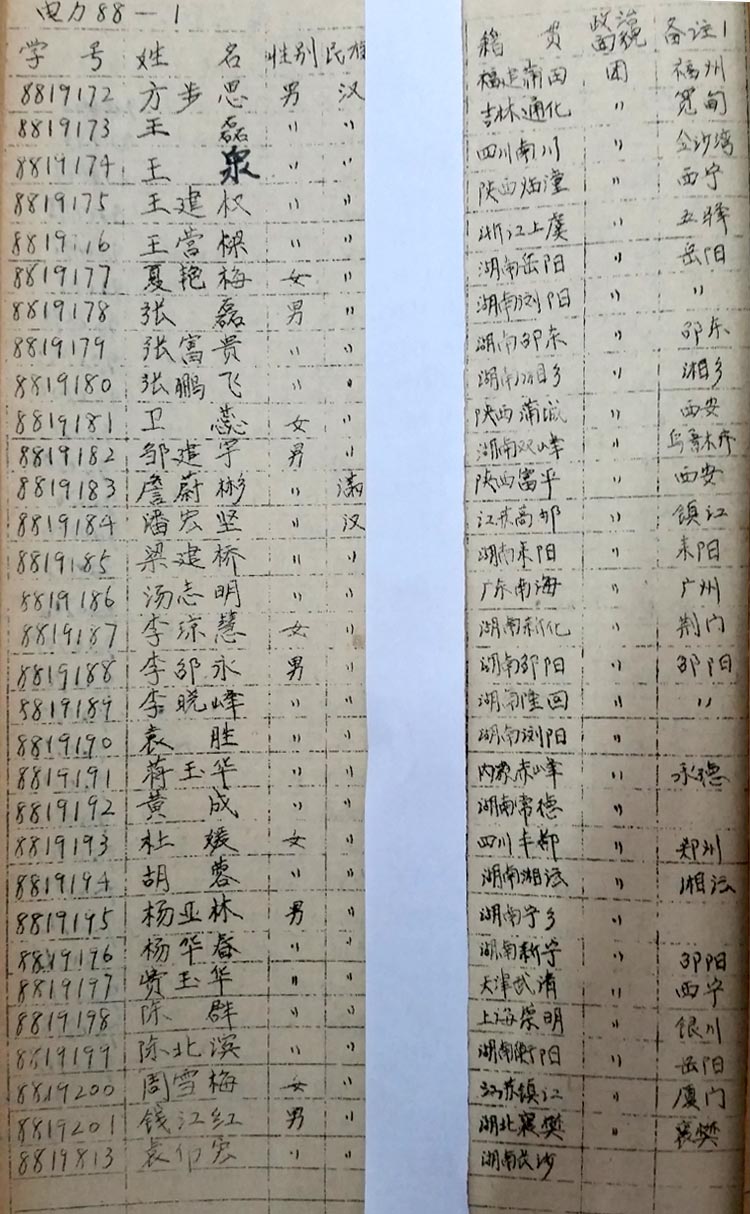 电力88-1
学号 姓名 性别 民族 籍贯 政治面貌 备注1
8819172 方步思 男 汉 福建莆田 团 福州
8819173 王磊 〃 〃 吉林通化 〃 宽甸
8819174 王泉 〃 〃 四川南川 〃 金沙湾
8819175 王建权 〃 〃 陕西临潼 〃 西宁
8819176 王营樑 〃 〃 浙江上虞 〃 五峰
8819177 夏艳梅 女 〃 湖南岳阳 〃 岳阳
8819178 张磊 男 〃 湖南浏阳 〃 〃
8819179 张富贵 〃 〃 湖南邵东 〃 邵东
8819180 张鹏飞 〃 〃 湖南湘乡 〃 湘乡
8819181 卫蕊 女 〃 陕西蒲城 〃 西安
8819182 邹建宇 男 〃 湖南双峰 〃 乌鲁木齐
8819183 詹蔚彬 〃 满 陕西富平 〃 西安
8819184 潘宏坚 〃 汉 江苏高邮 〃 镇江
8819185 梁建桥 〃 〃 湖南耒阳 〃 耒阳
8819186 汤志明 〃 〃 广东南海 〃 广州
8819187 李琼慧 女 〃 湖南新化 〃 荆门
8819188 李邵永 男 〃 湖南邵阳 〃 邵阳
8819189 李晓峰 〃 〃 湖南隆回 〃 〃
8819190 袁胜 〃 〃 湖南浏阳 〃
8819191 蒋玉华 〃 〃 内蒙赤峰 〃 承德
8819192 黄成 〃 〃 湖南常德 〃
8819193 杜媛 女 〃 四川丰都 〃 郑州
8819194 胡蓉 〃 〃 湖南湘潭 〃 湘潭
8819195 杨亚林 男 〃 湖南宁乡 〃
8819196 杨华春 〃 〃 湖南新宁 〃 邵阳
8819197 贾玉华 〃 〃 天津武清 〃 西宁
8819198 陈群 〃 〃 上海崇明 〃 银川
8819199 陈北滨 〃 〃 湖南衡阳 〃 岳阳
8819200 周雪梅 女 〃 江苏镇江 〃 厦门
8819201 钱江红 男 〃 湖北襄樊 〃 襄樊
8819813 袁仰宏 〃 〃 湖南长沙